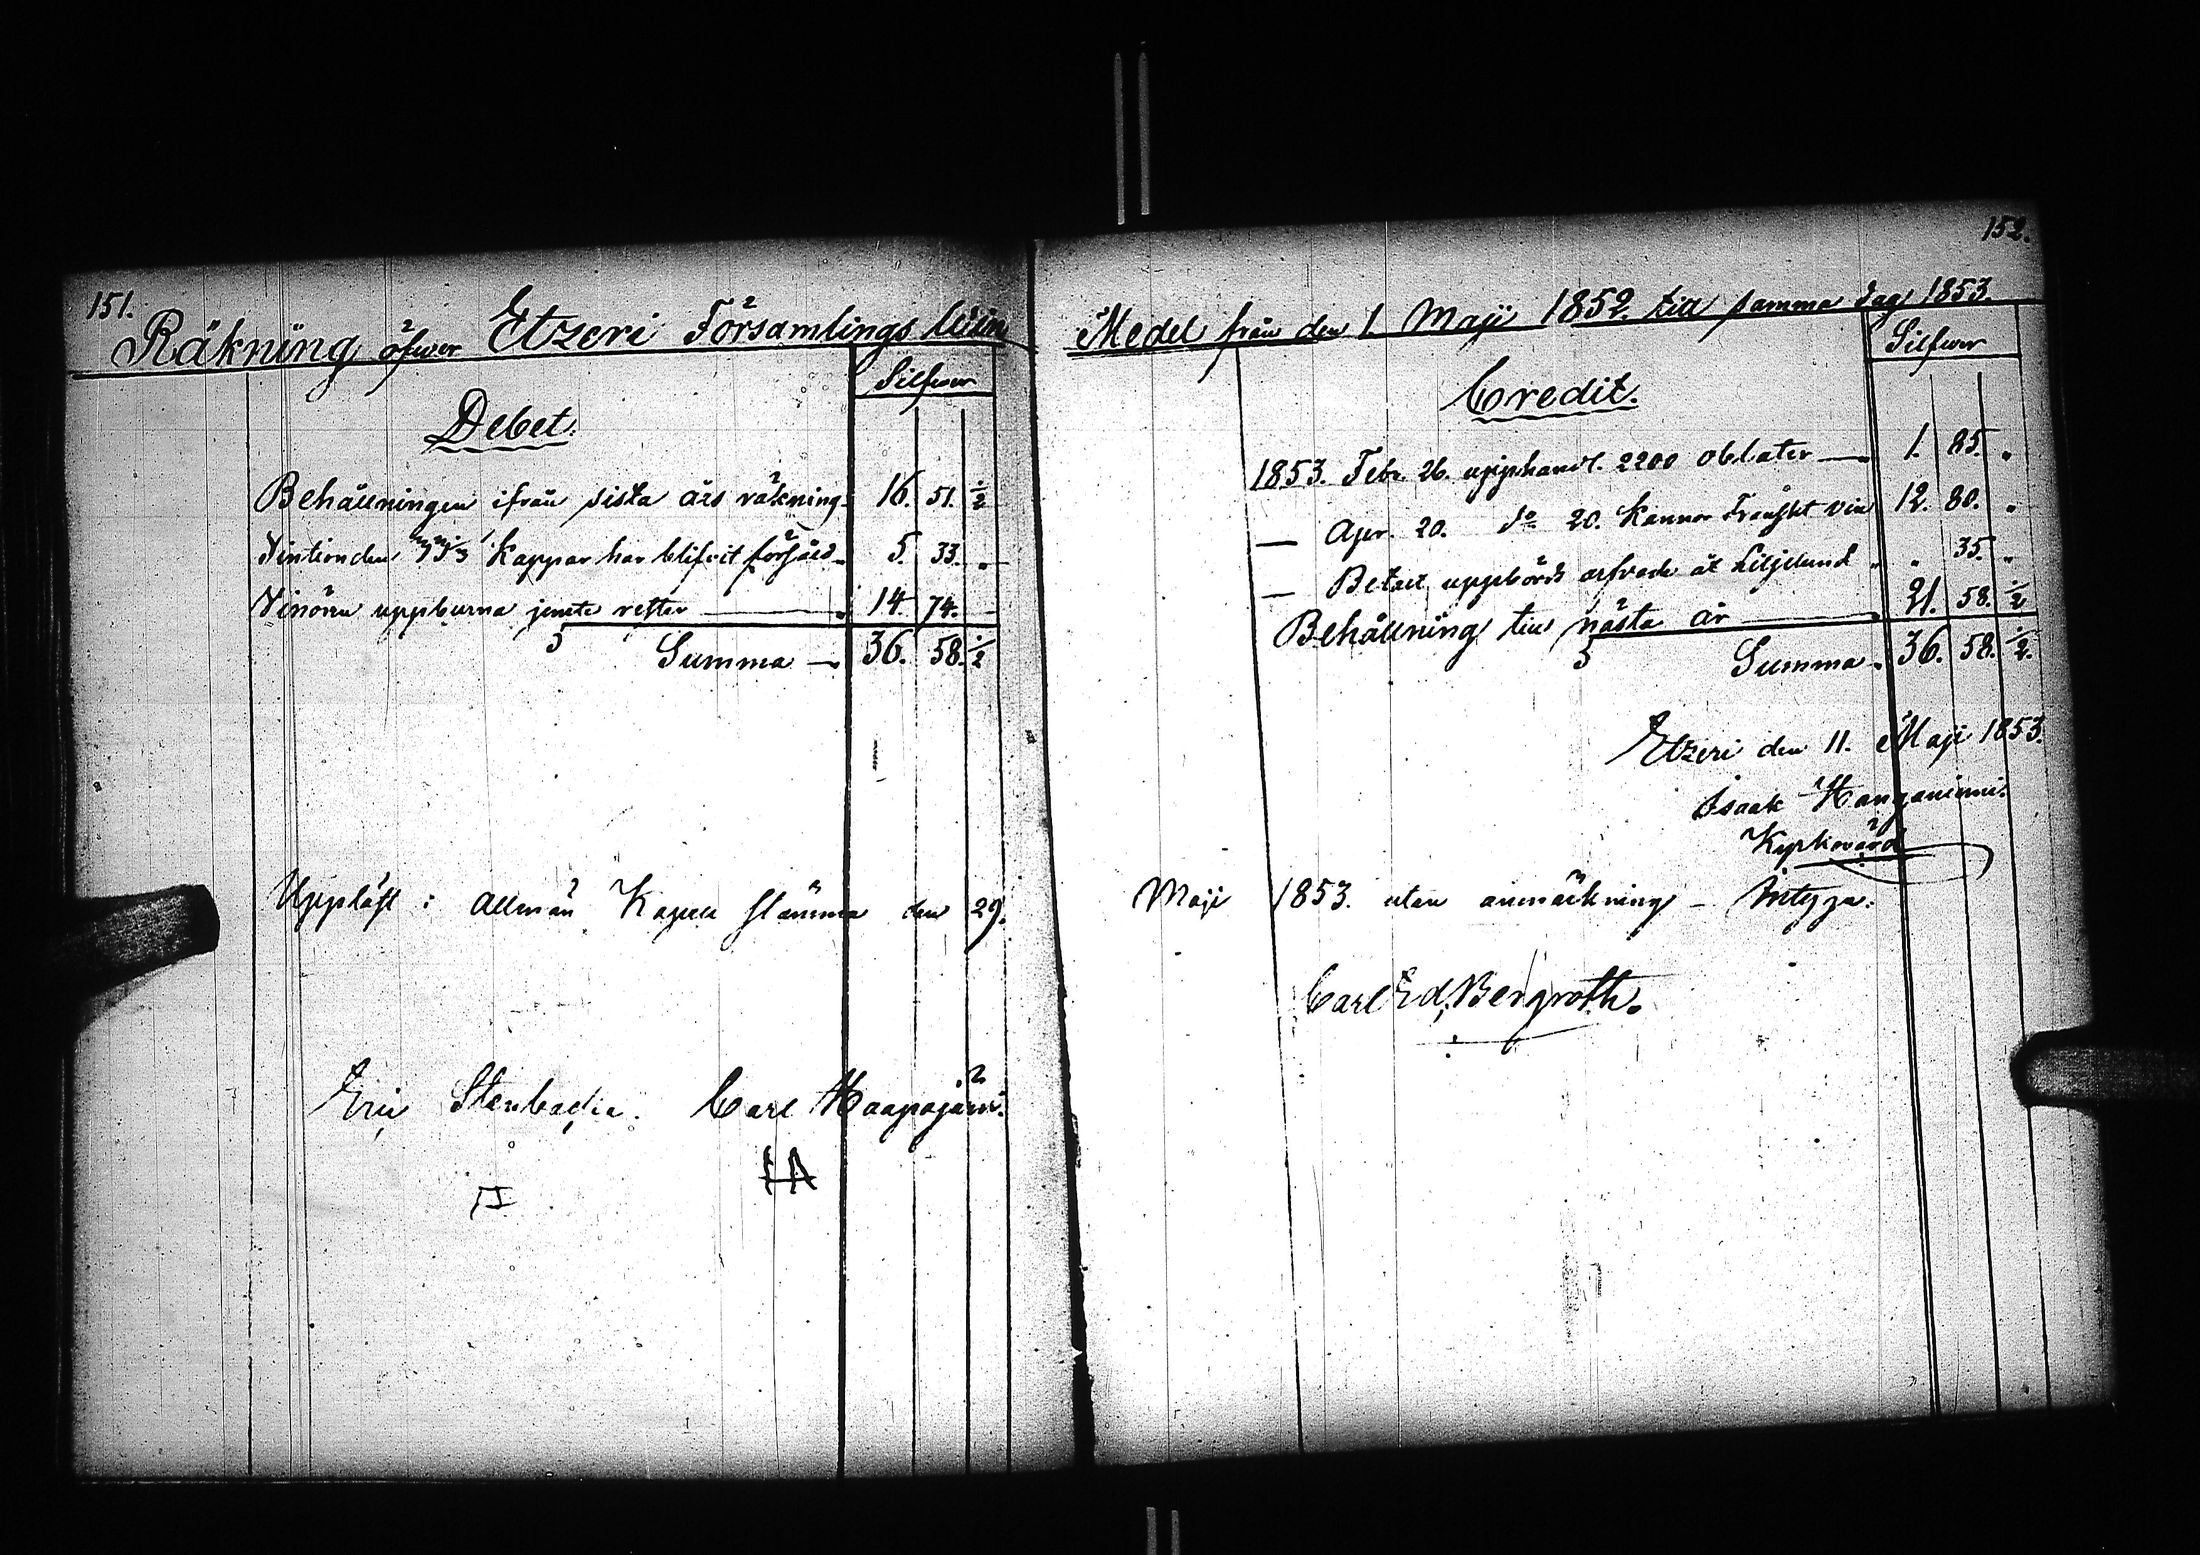 151.
Räkning öfwer Etzeri Församlings
Debet.
Silfwer
Behållningen ifrån sista års räkning 16. 51. ½
kappar har blifvit försåld 5. 33. "
Vinören uppburna jemte rester 14. 74. —
Summa 36. 58. ½
Uppläst i allmän Kapell stämma den 29.
Eric Stenbacka. Carl Haapajärvi.
HA
152.
Medel från den 1 Maji 1852 till samma dag 1853.
Credit.
Silfwer
1853. Febr. 26. upphandl. 2200 oblater 1. 85. "
— Apr. 20. do 20. Kannor Franskt vin 12. 80. "
— Betalt uppbörds arfvode åt Liljelund " 35. "
Behållning till nästa år 21. 58. ½
Summa 36. 58. ½.
Etzeri den 11. Maji 1853.
Isaak Hanganiemi.
Kyrkovärd
Maji 1853. utan anmärkning — Intyga:
Carl Ed. Bergroth.